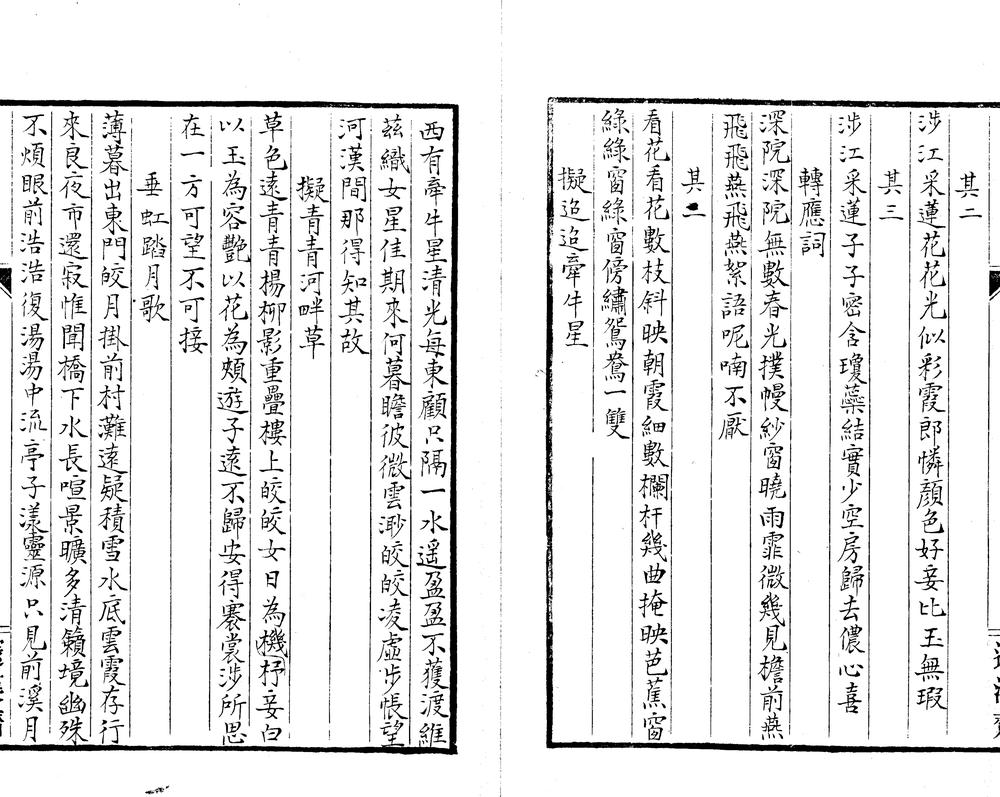 其二
涉江采蓮花花光似彩霞郎憐顔色好妾比玉無瑕
其三
涉江采蓮子子密含瓊蘂結實少空房歸去儂心喜
轉應詞
深院深院無數春光撲幔紗窗曉雨霏微幾見檐前燕
飛飛燕飛燕絮語呢喃不厭
其二
看花看花數枝斜映朝霞細數欄杆幾曲掩映芭蕉窗
綠綠窗綠窗傍繡鴛鴦一雙
擬迢迢牽牛星
西有牽牛星清光每東顧只隔一水遥盈盈不獲渡維
兹織女星佳期來何暮瞻彼微雲渺皎皎凌虛步悵望
河漢間那得知其故
擬青青河畔草
草色遠青青楊柳影重疊樓上皎皎女日為機杼妾白
以玉為容艷以花為頰遊子遠不歸安得褰裳涉所思
在一方可望不可接
垂虹踏月歌
薄暮出東門皎月掛前村灘遠疑積雪水底雲霞存行
來良夜市還寂惟聞橋下水長喧景曠多清籟境幽殊
不煩眼前浩浩復湯湯中流亭子漾靈源只見前溪月